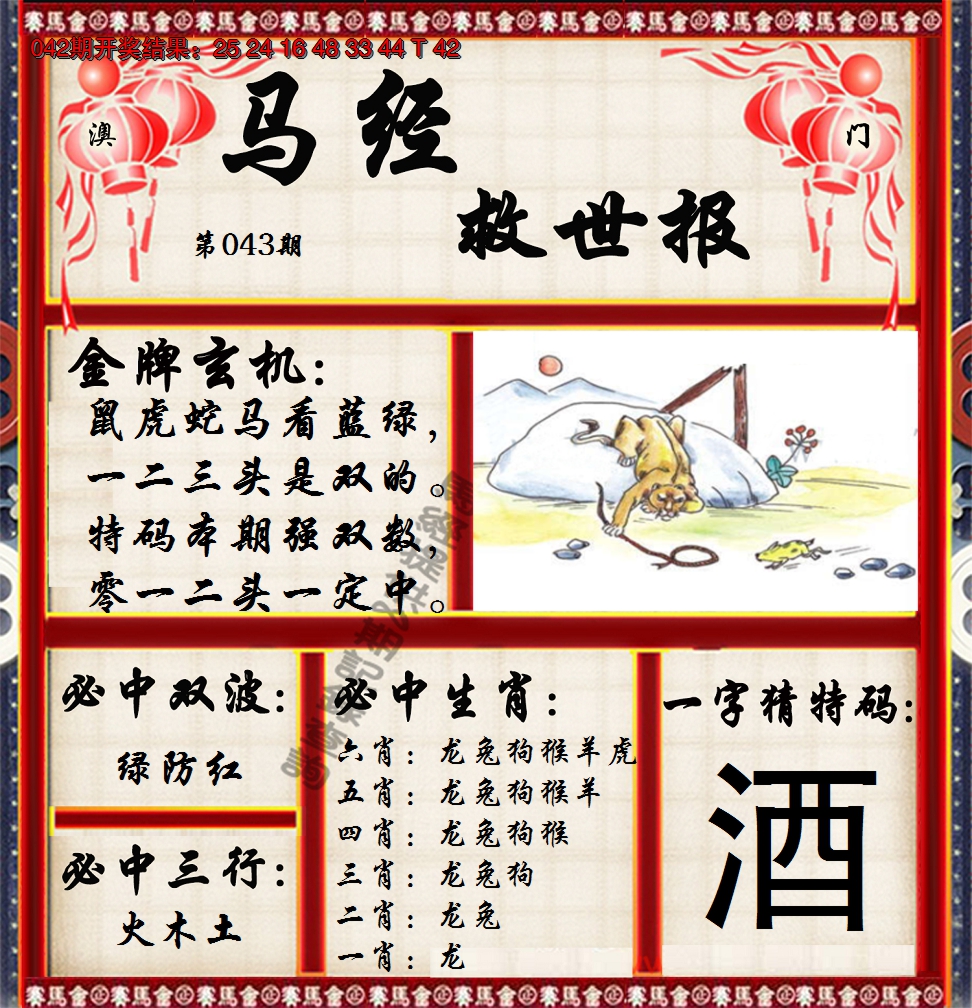 042期开奖结果：25 24 16 48 33 44 T 42
澳
门
马经
救世报
第043期
金牌玄机：
鼠虎蛇马看蓝绿，
一二三头是双的。
特码本期强双数，
零一二头一定中。
必中双波：
绿防红
必中三行：
火木土
必中生肖：
六肖：龙兔狗猴羊虎
五肖：龙兔狗猴羊
四肖：龙兔狗猴
三肖：龙兔狗
二肖：龙兔
一肖：龙
一字猜特码：
酒